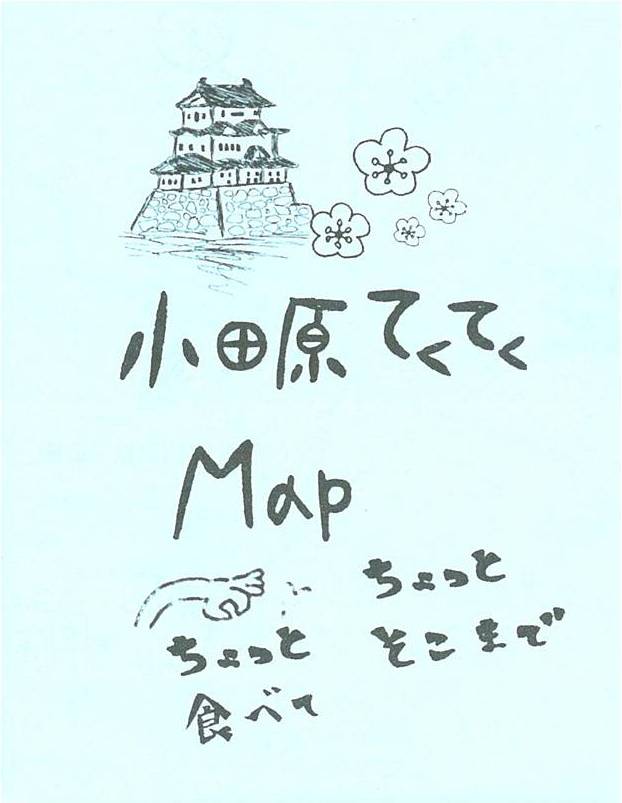 小田原てくてく
Map
ちょっと
食べて
ちょっと
そこまで